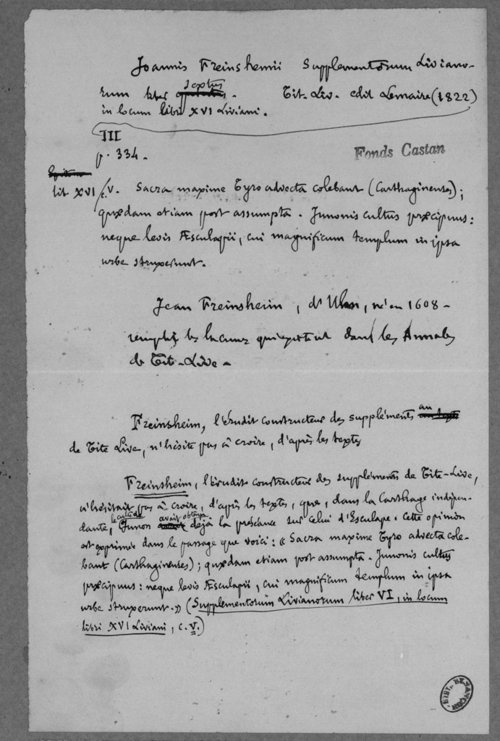 Joannis Freinshemii Supplementorum Liviano-
rum liber sextus. Tit-Liv. edit Lemaire (1822)
in locum libri XVI Liviani.
III
p. 334.
Fonds Castan
lib. XVI c. V. Sacra maxime Tyro advecta colebant (Carthaginenses);
quædam etiam post assumpta. Junonis cultus præcipuus:
neque levis Æsculapii, cui magnificum templum in ipsa
urbe struxerunt.
Jean Freinsheim, d'Ulm, né en 1608 -
remplit les lacunes qui existent dans les Annales
de Tite-Live -
Freinsheim, l'érudit constructeur des suppléments au texte
de Tite Live, n'hésite pas à croire, d'après les textes
Freinsheim, l'érudit constructeur des suppléments de Tite-Live,
n'hésitait pas à croire, d'après les textes, que, dans la Carthage indépen-
dante, le culte de Junon avait obtenu déjà la préséance sur celui d'Esculape. Cette opinion
est exprimée dans le passage que voici : « Sacra maxime Tyro advecta cole-
bant (Carthaginenses); quædam etiam post assumpta. Junonis cultus
præcipuus : neque levis Æsculapii, cui magnificum templum in ipsa
urbe struxerunt. » (Supplementorum Livianorum liber VI, in locum
libri XVI Liviani, c. V.)
BIBL. BESANÇON